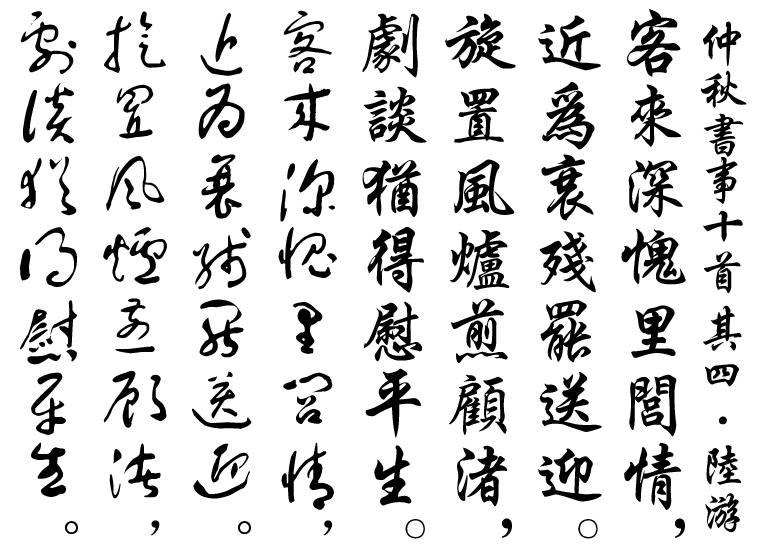 仲秋書事十首其四・陸游
客來深愧里閭情，
近爲衰殘罷送迎。
旋置風爐煎顧渚，
劇談猶得慰平生。
客来深愧里閭情，
近为衰残罷送迎。
旋置風爐煎顧渚，
劇談猶得慰平生。